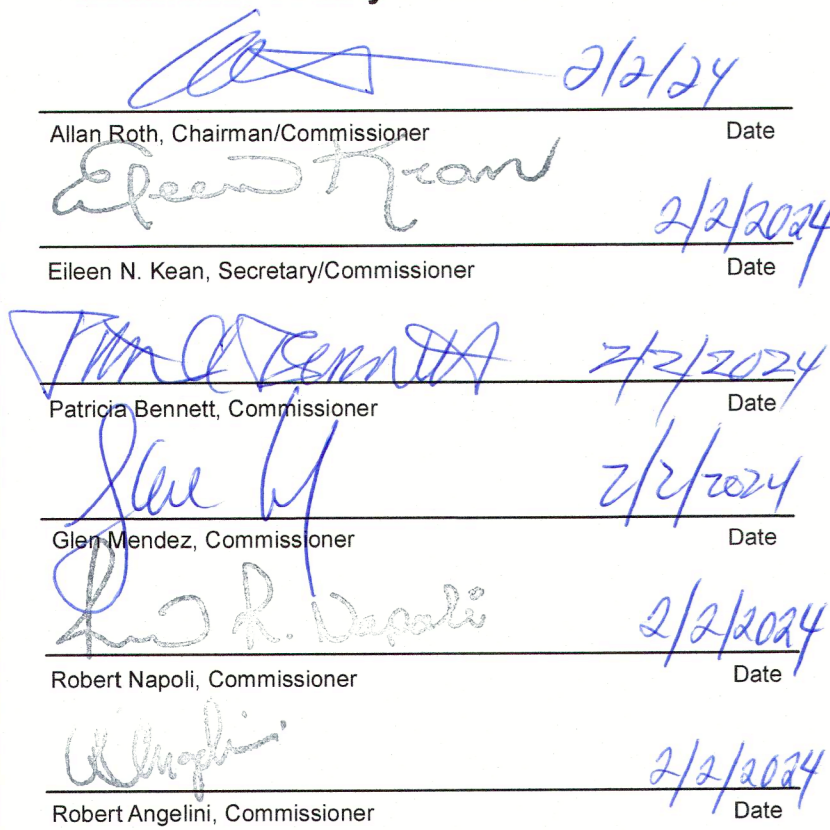 2/2/24
Allan Roth, Chairman/Commissioner Date
Eileen Kean
2/2/2024
Eileen N. Kean, Secretary/Commissioner Date
2/2/2024
Patricia Bennett, Commissioner Date
2/2/2024
Glen Mendez, Commissioner Date
R. Napoli
2/2/2024
Robert Napoli, Commissioner Date
2/2/2024
Robert Angelini, Commissioner Date